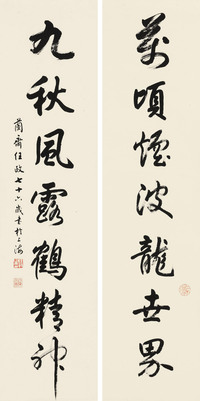 萬頃煙波龍世界
九秋風露鶴精神
蘭齋任政七十六歲書於上海